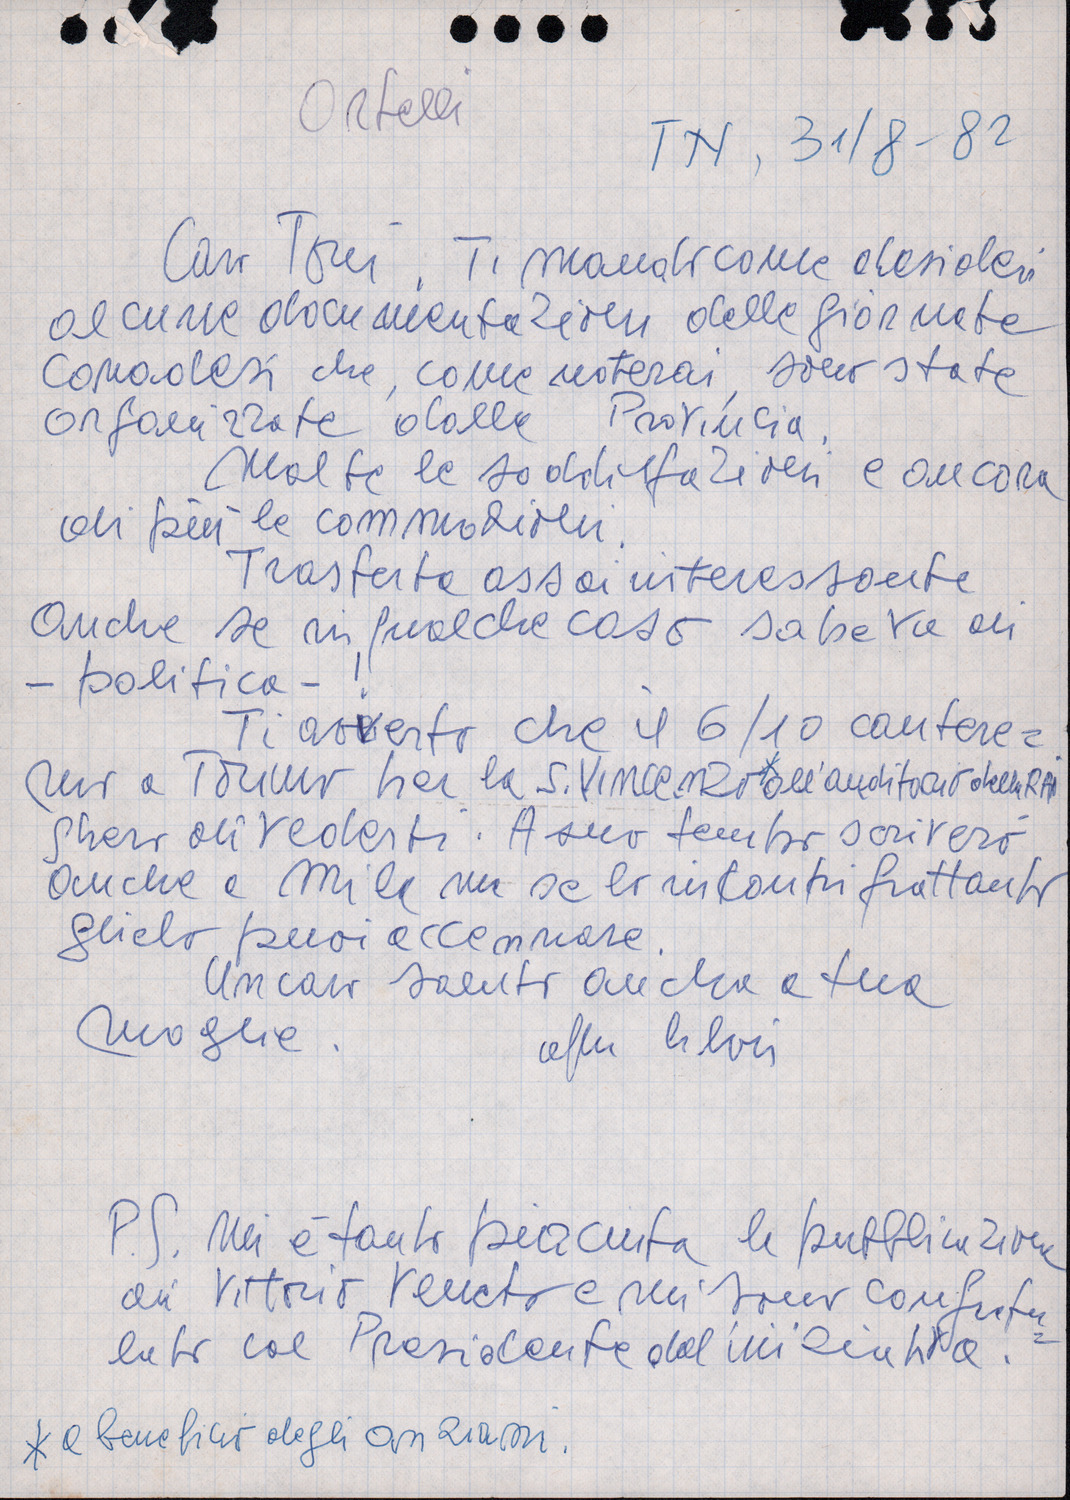 Ortelli
TN, 31/8-82
Caro Toni, Ti mando come desideri
alcune documentazioni delle giornate
canadesi che, come noterai, sono state
organizzate dalla Provincia.
Molte le soddisfazioni e ancora
di più le commozioni.
Trasferta assai interessante
anche se in qualche caso sapeva di
- politica - !
Ti avverto che il 6/10 cantere=
mo a Torino per la S. Vincenzo* all'auditorio della RAI
spero di vederti. A suo tempo scriverò
anche a Mila ma se lo incontri frattanto
glielo puoi accennare.
Un caro saluto anche a tua
moglie. aff.
P.S. Mi è tanto piaciuta la pubblicazione
di Vittorio Veneto e mi sono congratu=
lato col Presidente dell'iniziativa.
* a beneficio degli anziani.